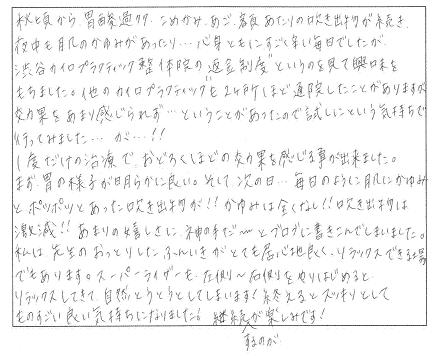 秋頃から、胃酸過多、こめかみ、あご、額あたりの吹き出物が続き、
夜中も肌のかゆみがあったり…心身ともにすごく辛い毎日でしたが、
渋谷カイロプラクティック整体院の"返金制度"というのを見て興味を
もちました。他のカイロプラクティックも2ヶ所ほど通院したことがありますが
効果をあまり感じられず…ということがあったので試しにという気持ちで
行ってみました…が…!!
1度だけの治療で、おどろくほどの効果を感じる事が出来ました。
まず、胃の様子が明らかに良い。そして次の日…毎日のように肌にかゆみ
とポツポツとあった吹き出物が!!かゆみは全くなし!!吹き出物は
激減!!あまりの嬉しさに、神の手だ〜とブログに書きこんでしまいました。
私は先生のおっとりしたふんいきがとても居心地良く、リラックスできる場
でもあります。スーパーライザーも左側〜右側をやりはじめると
リラックスしてきて自然とうとうとしてしまいます!終えるとスッキリとして
ものすごい良い気持ちになりました。継続するのが楽しみです!